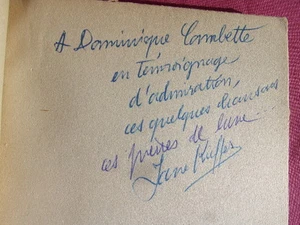 A Dominique Combette
en témoignage
d'admiration,
ces quelques chansons
ces pierres de lune...
Jane Kieffer